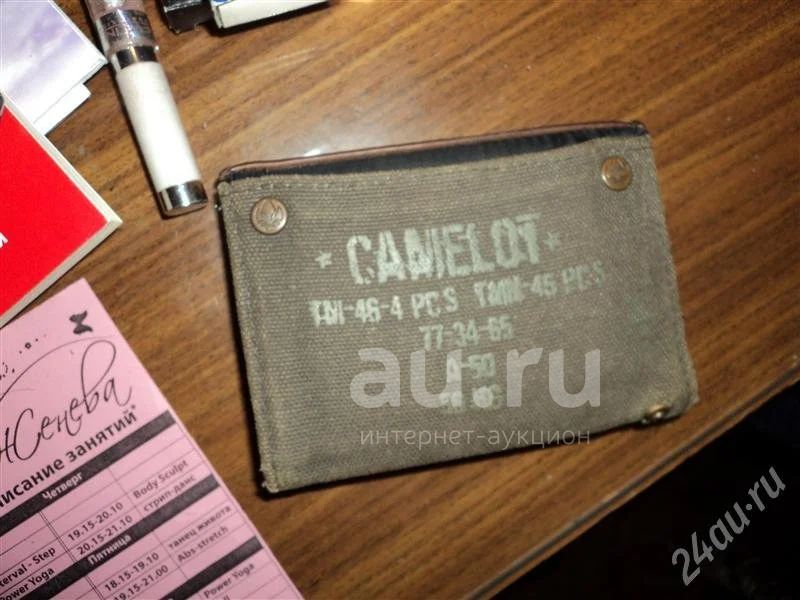 * CAMELOT *
TM-46-4 PCS TMM-46 PCS
77-34-65
A-50
au.ru
интернет-аукцион
24au.ru
Женева
писание занятий*
Четверг
19.15-20.10 Body Sculpt
20.15-21.10 стрип-данс
Пятница
terval - Step 18.15-19.10 танец живота
Power Yoga 19.15-21.00 Abs-stretch
Power Yoga